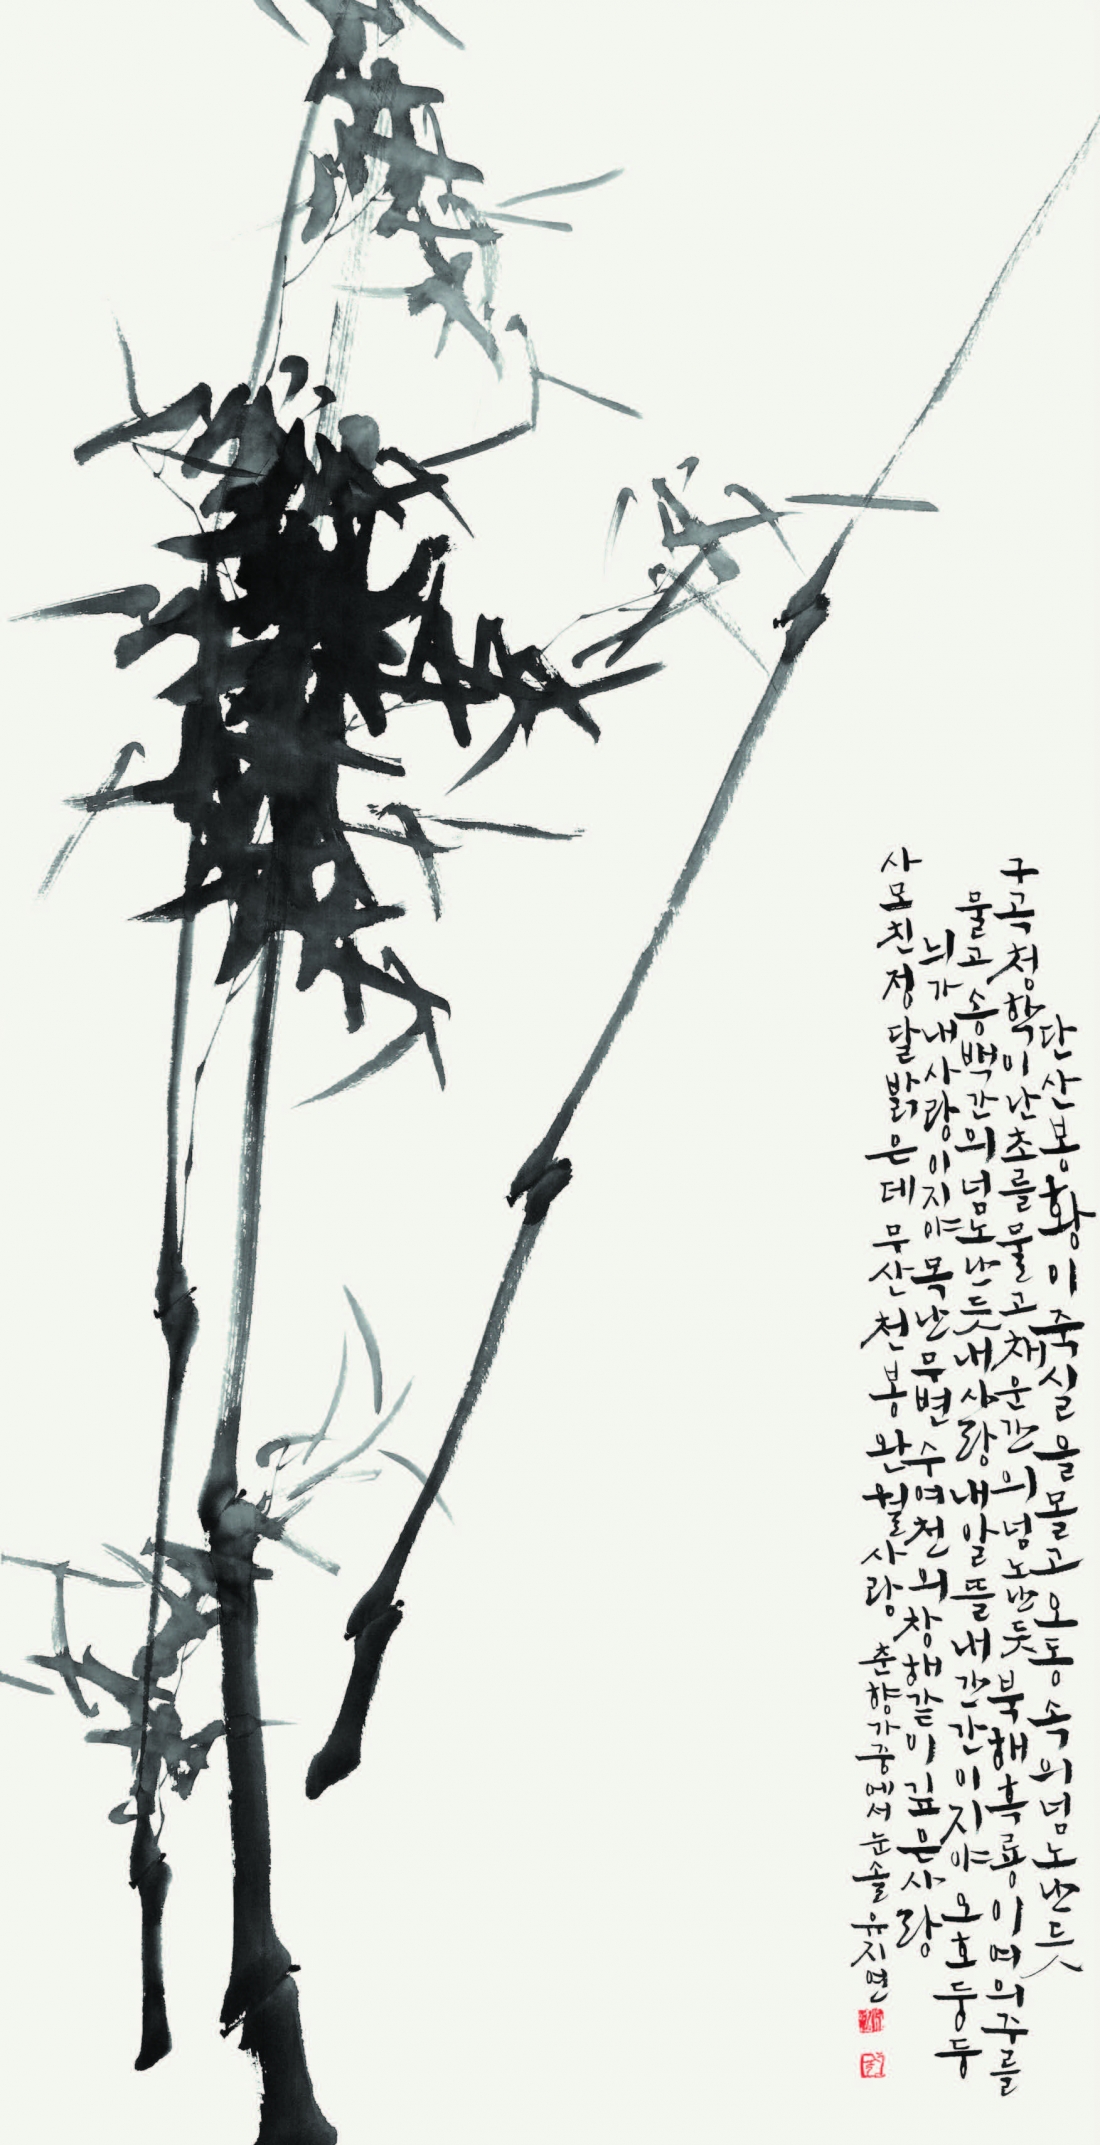 단산봉황이죽실을물고오동속의넘노난듯
구곡청학이난초를물고채운간의넘노난듯북해흑룡이여의주를
물고송백간의넘노난듯내사랑내알뜰내간간이지야오호둥둥
늬가내사랑이지야목난무변수여천의창해같이깊은사랑
사모친정달밝은데무산천봉완월사랑 춘향가중에서눈솔유지연